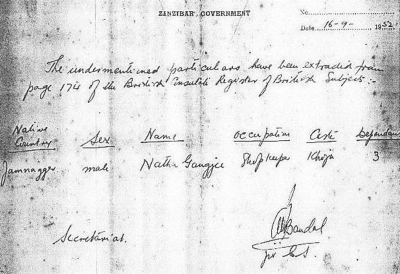 ZANZIBAR GOVERNMENT
No.
Date 16-9- 1952.
The undermentioned particulars have been extracted from
page 174 of the British Consulate Register of British Subjects:-
Native Country Sex Name Occupation Caste Dependants
Jamnagger male Natha Gangjee Shopkeeper Khoja 3
Secretariat.
for C.S.